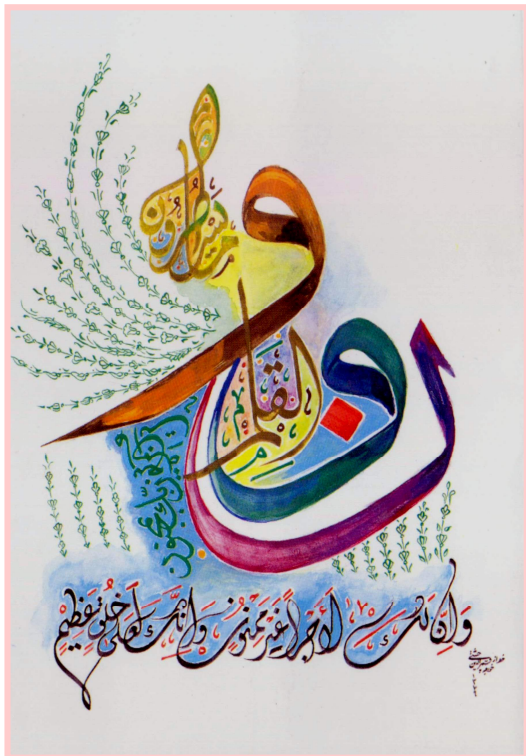 ن والقلم
وما يسطرون
ما أنت بنعمة ربك بمجنون
وَإِنَّ لَكَ لَأَجْرًا غَيْرَ مَمْنُونٍ وَإِنَّكَ لَعَلَى خُلُقٍ عَظِيمٍ